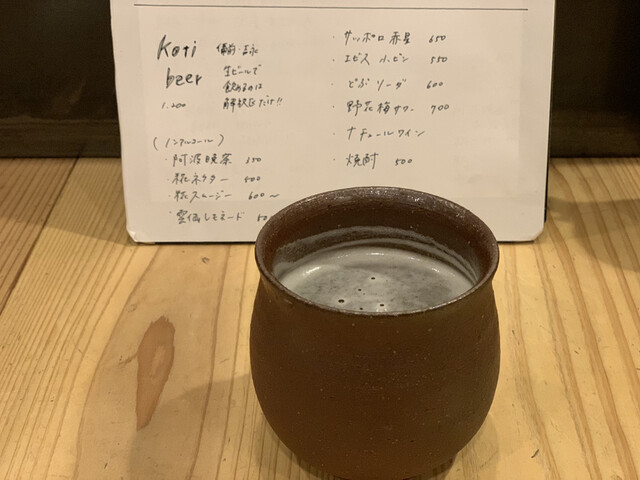 Koti 備前・吉永
beer 生ビールで
飲めるのは
1.200 解放区だけ!!
(ノンアルコール)
・阿波晩茶 350
・糀ネクター 500
・糀スムージー 600〜
・レモネード
・サッポロ赤星 650
・エビス 小ビン 550
・どぶソーダ 600
・野花梅サワー 700
・ナチュールワイン
・焼酎 500